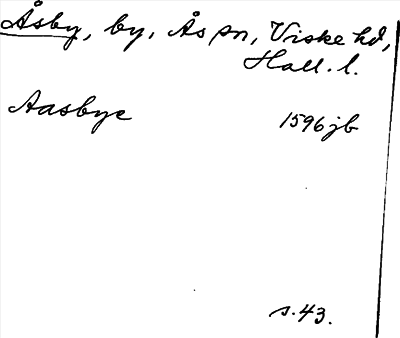 Åsby, by, Ås sn, Viske hd,
Hall. l.
Aasbye 1596 jb
s. 43.